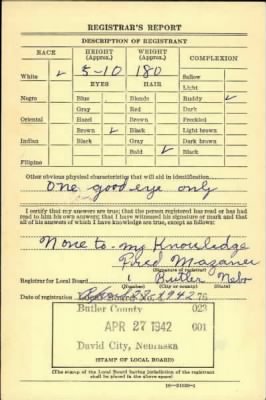 REGISTRAR'S REPORT
DESCRIPTION OF REGISTRANT
RACE HEIGHT (Approx.) WEIGHT (Approx.) COMPLEXION
White ✓ 5-10 180 Sallow
EYES HAIR Light
Negro Blue Blonde Ruddy ✓
Gray Red Dark
Oriental Hazel Brown Freckled
Brown ✓ Black Light brown
Indian Black Gray Dark brown
Bald ✓ Black
Filipino
Other obvious physical characteristics that will aid in identification
One good eye only
I certify that my answers are true; that the person registered has read or has had read to him his own answers; that I have witnessed his signature or mark and that all of his answers of which I have knowledge are true, except as follows:
None to my Knowledge
Fred
(Signature of registrar)
Registrar for Local Board 1 Butler Nebr
(Number) (City or county) (State)
Date of registration 1942
Butler County 023
APR 27 1942 001
David City, Nebraska
(STAMP OF LOCAL BOARD)
(The stamp of the Local Board having jurisdiction of the registrant shall be placed in the above space.)